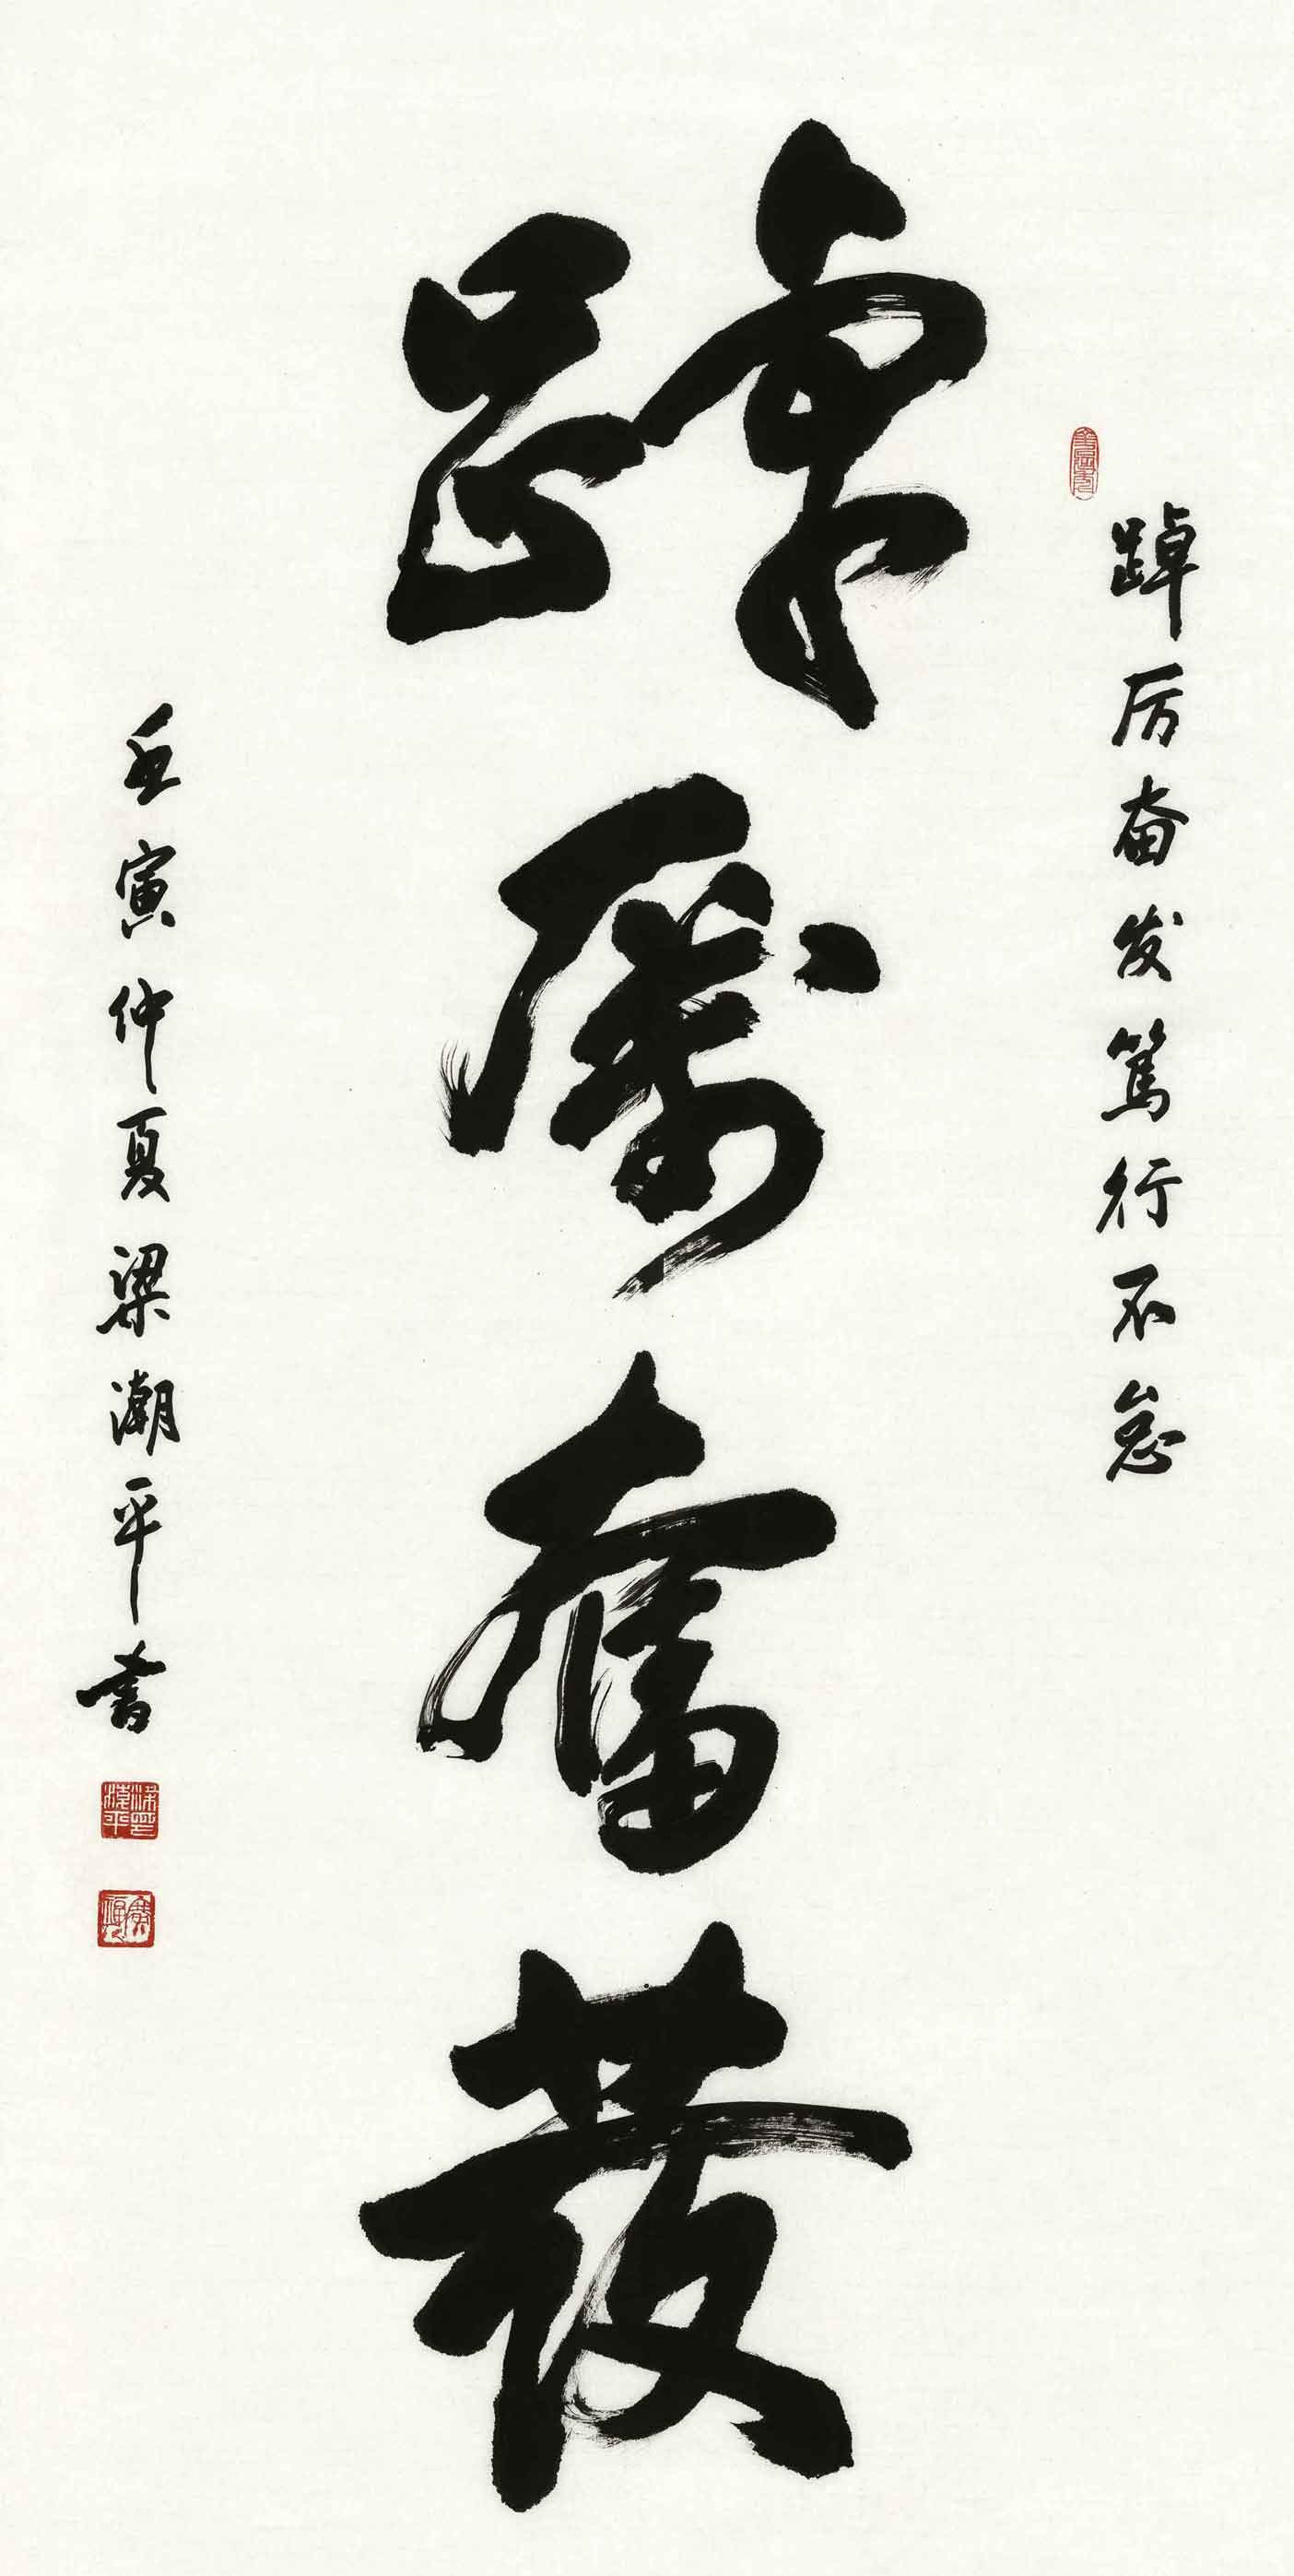 踔厉奋发笃行不怠
踔厲奮發
壬寅仲夏梁潮平书